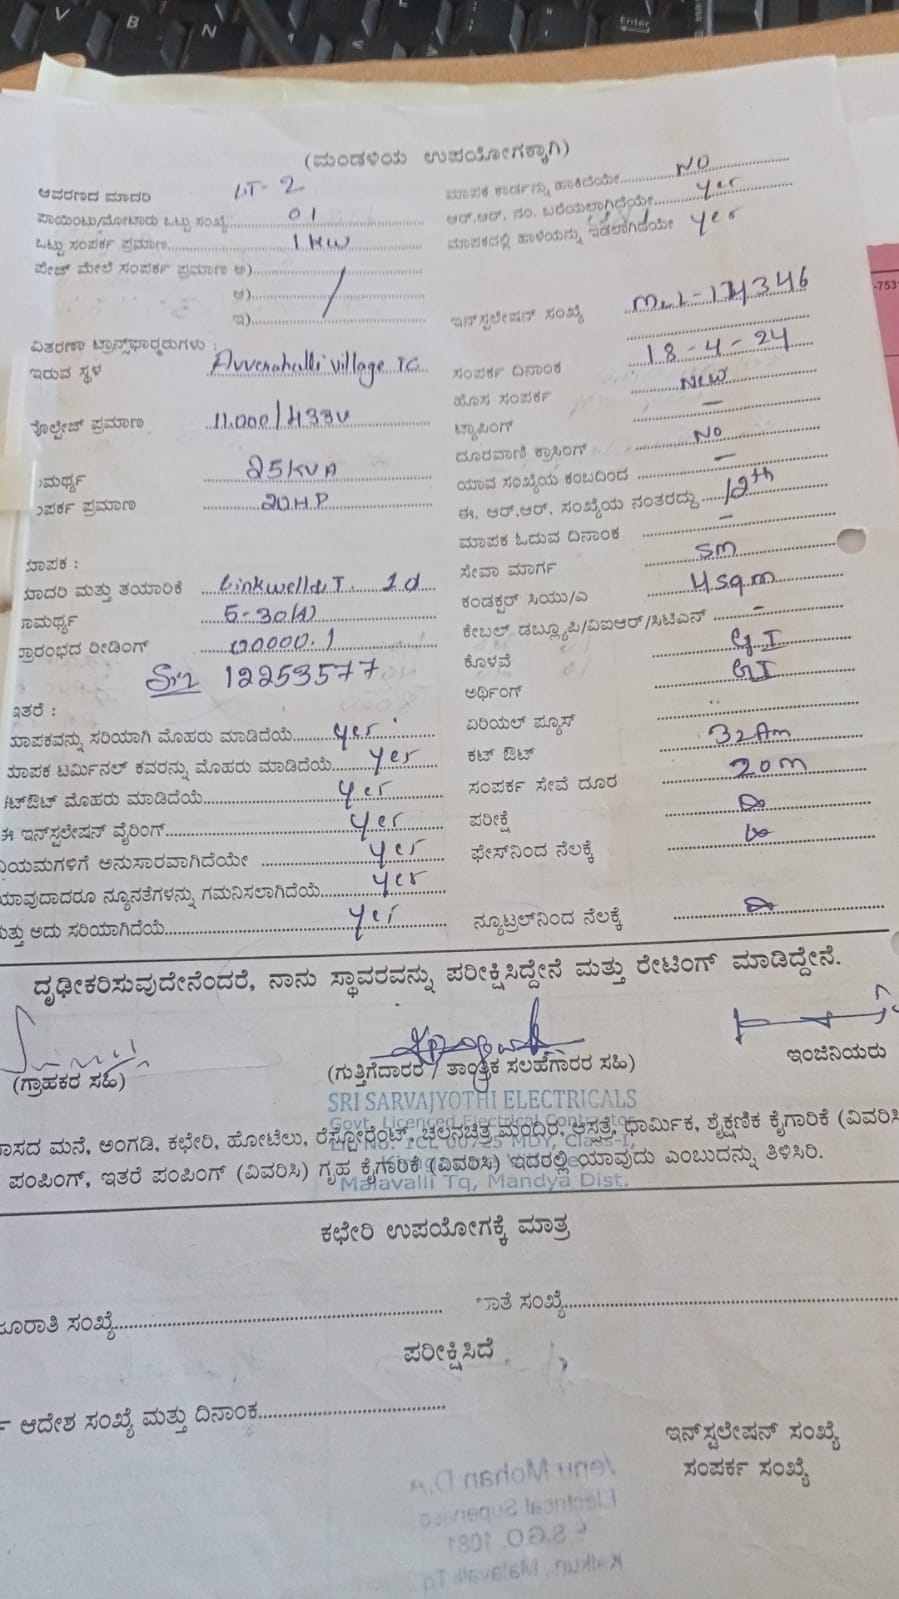 (ಮಂಡಳಿಯ ಉಪಯೋಗಕ್ಕಾಗಿ)
ಆವರಣದ ಮಾದರಿ LT-2
ಪಾಯಿಂಟು/ಮೋಟಾರು ಒಟ್ಟು ಸಂಖ್ಯೆ 01
ಒಟ್ಟು ಸಂಪರ್ಕ ಪ್ರಮಾಣ 1 KW
ಫೇಜ್ ಮೇಲೆ ಸಂಪರ್ಕ ಪ್ರಮಾಣ ಅ)
ಆ)
ಇ)
ವಿತರಣಾ ಟ್ರಾನ್ಸ್‌ಫಾರ್‍ಮರುಗಳು :
ಇರುವ ಸ್ಥಳ village TC
ವೋಲ್ಟೇಜ್ ಪ್ರಮಾಣ 11.000/433V
ಾಮರ್ಥ್ಯ 25KVA
ಂಪರ್ಕ ಪ್ರಮಾಣ 20H.P
ಾಪಕ :
ಾದರಿ ಮತ್ತು ತಯಾರಿಕೆ
ಾಮರ್ಥ್ಯ 5-30(A)
್ರಾರಂಭದ ರೀಡಿಂಗ್ 00000.1
12253577
ಇತರೆ :
ಾಪಕವನ್ನು ಸರಿಯಾಗಿ ಮೊಹರು ಮಾಡಿದೆಯೆ yes
ಾಪಕ ಟರ್ಮಿನಲ್ ಕವರನ್ನು ಮೊಹರು ಮಾಡಿದೆಯೆ yes
ಟ್‌ಔಟ್ ಮೊಹರು ಮಾಡಿದೆಯೆ yes
ಈ ಇನ್‌ಸ್ಟಲೇಷನ್ ವೈರಿಂಗ್ yes
ನಿಯಮಗಳಿಗೆ ಅನುಸಾರವಾಗಿದೆಯೇ yes
ಯಾವುದಾದರೂ ನ್ಯೂನತೆಗಳನ್ನು ಗಮನಿಸಲಾಗಿದೆಯೆ yes
ಮತ್ತು ಅದು ಸರಿಯಾಗಿದೆಯೆ yes
ಮಾಪಕ ಕಾರ್ಡನ್ನು ಹಾಕಿದೆಯೇ NO
ಆರ್.ಆರ್. ನಂ. ಬರೆಯಲಾಗಿದೆಯೇ yes
ಮಾಪಕದಲ್ಲಿ ಹಾಳೆಯನ್ನು ಇಡಲಾಗಿದೆಯೇ yes
ಇನ್‌ಸ್ಟಲೇಷನ್ ಸಂಖ್ಯೆ
ಸಂಪರ್ಕ ದಿನಾಂಕ 18-4-24
ಹೊಸ ಸಂಪರ್ಕ New
ಟ್ಯಾಪಿಂಗ್ -
ದೂರವಾಣಿ ಕ್ರಾಸಿಂಗ್ No
ಯಾವ ಸಂಖ್ಯೆಯ ಕಂಬದಿಂದ -
ಈ. ಆರ್.ಆರ್. ಸಂಖ್ಯೆಯ ನಂತರದ್ದು 12th
ಮಾಪಕ ಓದುವ ದಿನಾಂಕ -
ಸೇವಾ ಮಾರ್ಗ SM
ಕಂಡಕ್ಟರ್ ಸಿಯು/ಎ 4sqm
ಕೇಬಲ್ ಡಬ್ಲ್ಯೂಪಿ/ವಿಐಆರ್/ಸಿಟಿಎಸ್ -
ಕೊಳವೆ G.I
ಅರ್ಥಿಂಗ್ GI
ಏರಿಯಲ್ ಫ್ಯೂಸ್
ಕಟ್ ಔಟ್ 32Am
ಸಂಪರ್ಕ ಸೇವೆ ದೂರ 20m
ಪರೀಕ್ಷೆ
ಫೇಸ್‌ನಿಂದ ನೆಲಕ್ಕೆ
ನ್ಯೂಟ್ರಲ್‌ನಿಂದ ನೆಲಕ್ಕೆ
ದೃಢೀಕರಿಸುವುದೇನೆಂದರೆ, ನಾನು ಸ್ಥಾವರವನ್ನು ಪರೀಕ್ಷಿಸಿದ್ದೇನೆ ಮತ್ತು ರೇಟಿಂಗ್ ಮಾಡಿದ್ದೇನೆ.
(ಗ್ರಾಹಕರ ಸಹಿ)
(ಗುತ್ತಿಗೆದಾರರ / ತಾಂತ್ರಿಕ ಸಲಹೆಗಾರರ ಸಹಿ)
ಇಂಜಿನಿಯರು
SRI SARVAJYOTHI ELECTRICALS
Govt. Licenced Electrical Contractor
ಾಸದ ಮನೆ, ಅಂಗಡಿ, ಕಛೇರಿ, ಹೋಟೆಲು, ರೆಸ್ಟೋರೆಂಟ್, ಚಲನಚಿತ್ರ ಮಂದಿರ, ಆಸ್ಪತ್ರೆ, ಧಾರ್ಮಿಕ, ಶೈಕ್ಷಣಿಕ ಕೈಗಾರಿಕೆ (ವಿವರಿಸಿ
ಪಂಪಿಂಗ್, ಇತರೆ ಪಂಪಿಂಗ್ (ವಿವರಿಸಿ) ಗೃಹ ಕೈಗಾರಿಕೆ (ವಿವರಿಸಿ) ಇದರಲ್ಲಿ ಯಾವುದು ಎಂಬುದನ್ನು ತಿಳಿಸಿರಿ.
Malavalli Tq, Mandya Dist.
ಕಛೇರಿ ಉಪಯೋಗಕ್ಕೆ ಮಾತ್ರ
ಜೂರಾತಿ ಸಂಖ್ಯೆ
ಾತೆ ಸಂಖ್ಯೆ
ಪರೀಕ್ಷಿಸಿದೆ
ಆದೇಶ ಸಂಖ್ಯೆ ಮತ್ತು ದಿನಾಂಕ
ಇನ್‌ಸ್ಟಲೇಷನ್ ಸಂಖ್ಯೆ
ಸಂಪರ್ಕ ಸಂಖ್ಯೆ